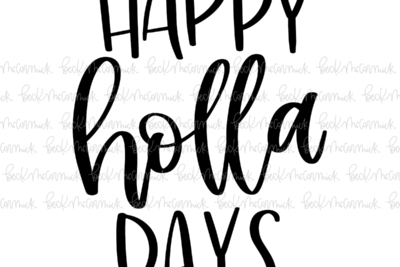 HAPPY
holla
DAYS